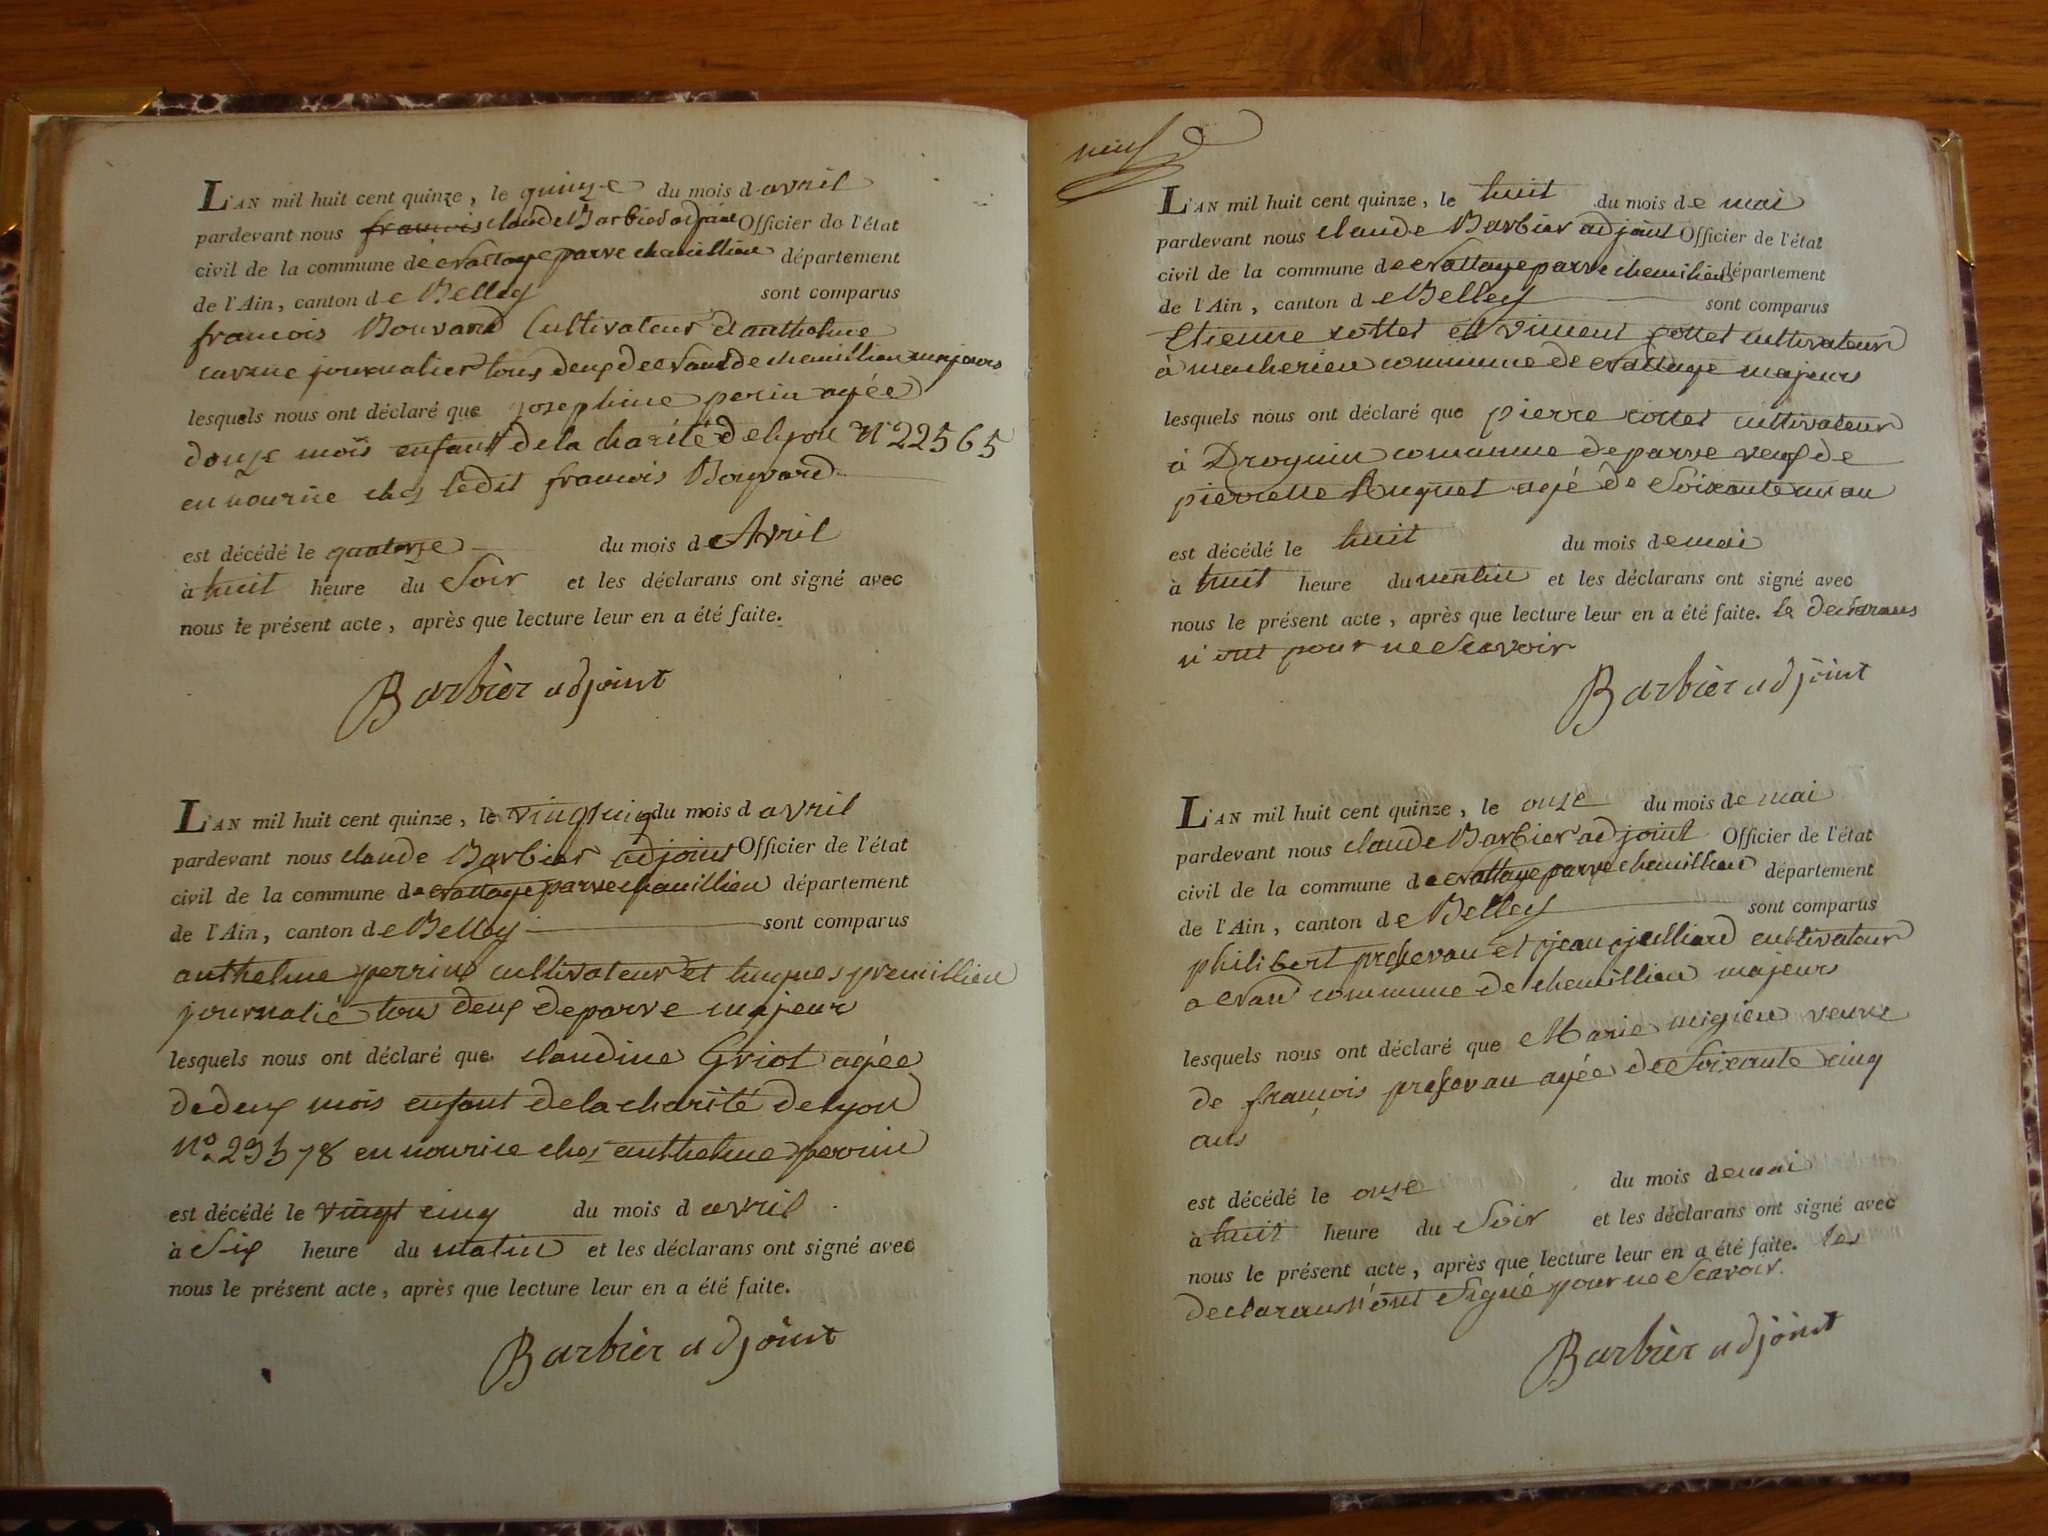 L'AN mil huit cent quinze, le quinze du mois d avril
pardevant nous francois claude Barbier adjoint Officier de l'état
civil de la commune de parve chemillieu département
de l'Ain, canton de Belley sont comparus
francois Bouvard Cultivateur et anthelme
journalier tous deux de de chemillieu majeurs
lesquels nous ont déclaré que josephine perin agée
douze mois enfant de la charité de lyon N 22565
en nourice ches ledit francois Bouvard
est décédé le quatorze du mois de Avril
à huit heure du Soir et les déclarans ont signé avec
nous le présent acte, après que lecture leur en a été faite.
Barbier adjoint
L'AN mil huit cent quinze, le vingt cinq du mois d avril
pardevant nous claude Barbier adjoint Officier de l'état
civil de la commune de parve chemillieu département
de l'Ain, canton de Belley sont comparus
anthelme perrin cultivateur et hugues premillieu
journalié tous deux de parve majeur
lesquels nous ont déclaré que claudine Griot agée
de deux mois enfant de la charité de lyon
N° 23578 en nourice ches anthelme perrin
est décédé le vingt cinq du mois d avril
à Six heure du matin et les déclarans ont signé avec
nous le présent acte, après que lecture leur en a été faite.
Barbier adjoint
neuf
L'AN mil huit cent quinze, le huit du mois de mai
pardevant nous claude Barbier adjoint Officier de l'état
civil de la commune de parve chemilieu département
de l'Ain, canton de Belley sont comparus
Etienne cottet et vincent cottet cultivateur
à commune de majeurs
lesquels nous ont déclaré que pierre cottet cultivateur
à commune de parve veuf de
pierrette huguet agé de Soixante un an
est décédé le huit du mois de mai
à huit heure du matin et les déclarans ont signé avec
nous le présent acte, après que lecture leur en a été faite. les declarans
n'ont pour ne Scavoir
Barbier adjoint
L'AN mil huit cent quinze, le onze du mois de mai
pardevant nous claude Barbier adjoint Officier de l'état
civil de la commune de parve chemillieu département
de l'Ain, canton de Belley sont comparus
philibert et jean juilliard cultivateur
a commune de chemillieu majeurs
lesquels nous ont déclaré que Marie migieu veuve
de françois agée de Soixante cinq
ans
est décédé le onze du mois de mai
à huit heure du Soir et les déclarans ont signé avec
nous le présent acte, après que lecture leur en a été faite. les
declarans n'ont Signé pour ne Scavoir.
Barbier adjoint